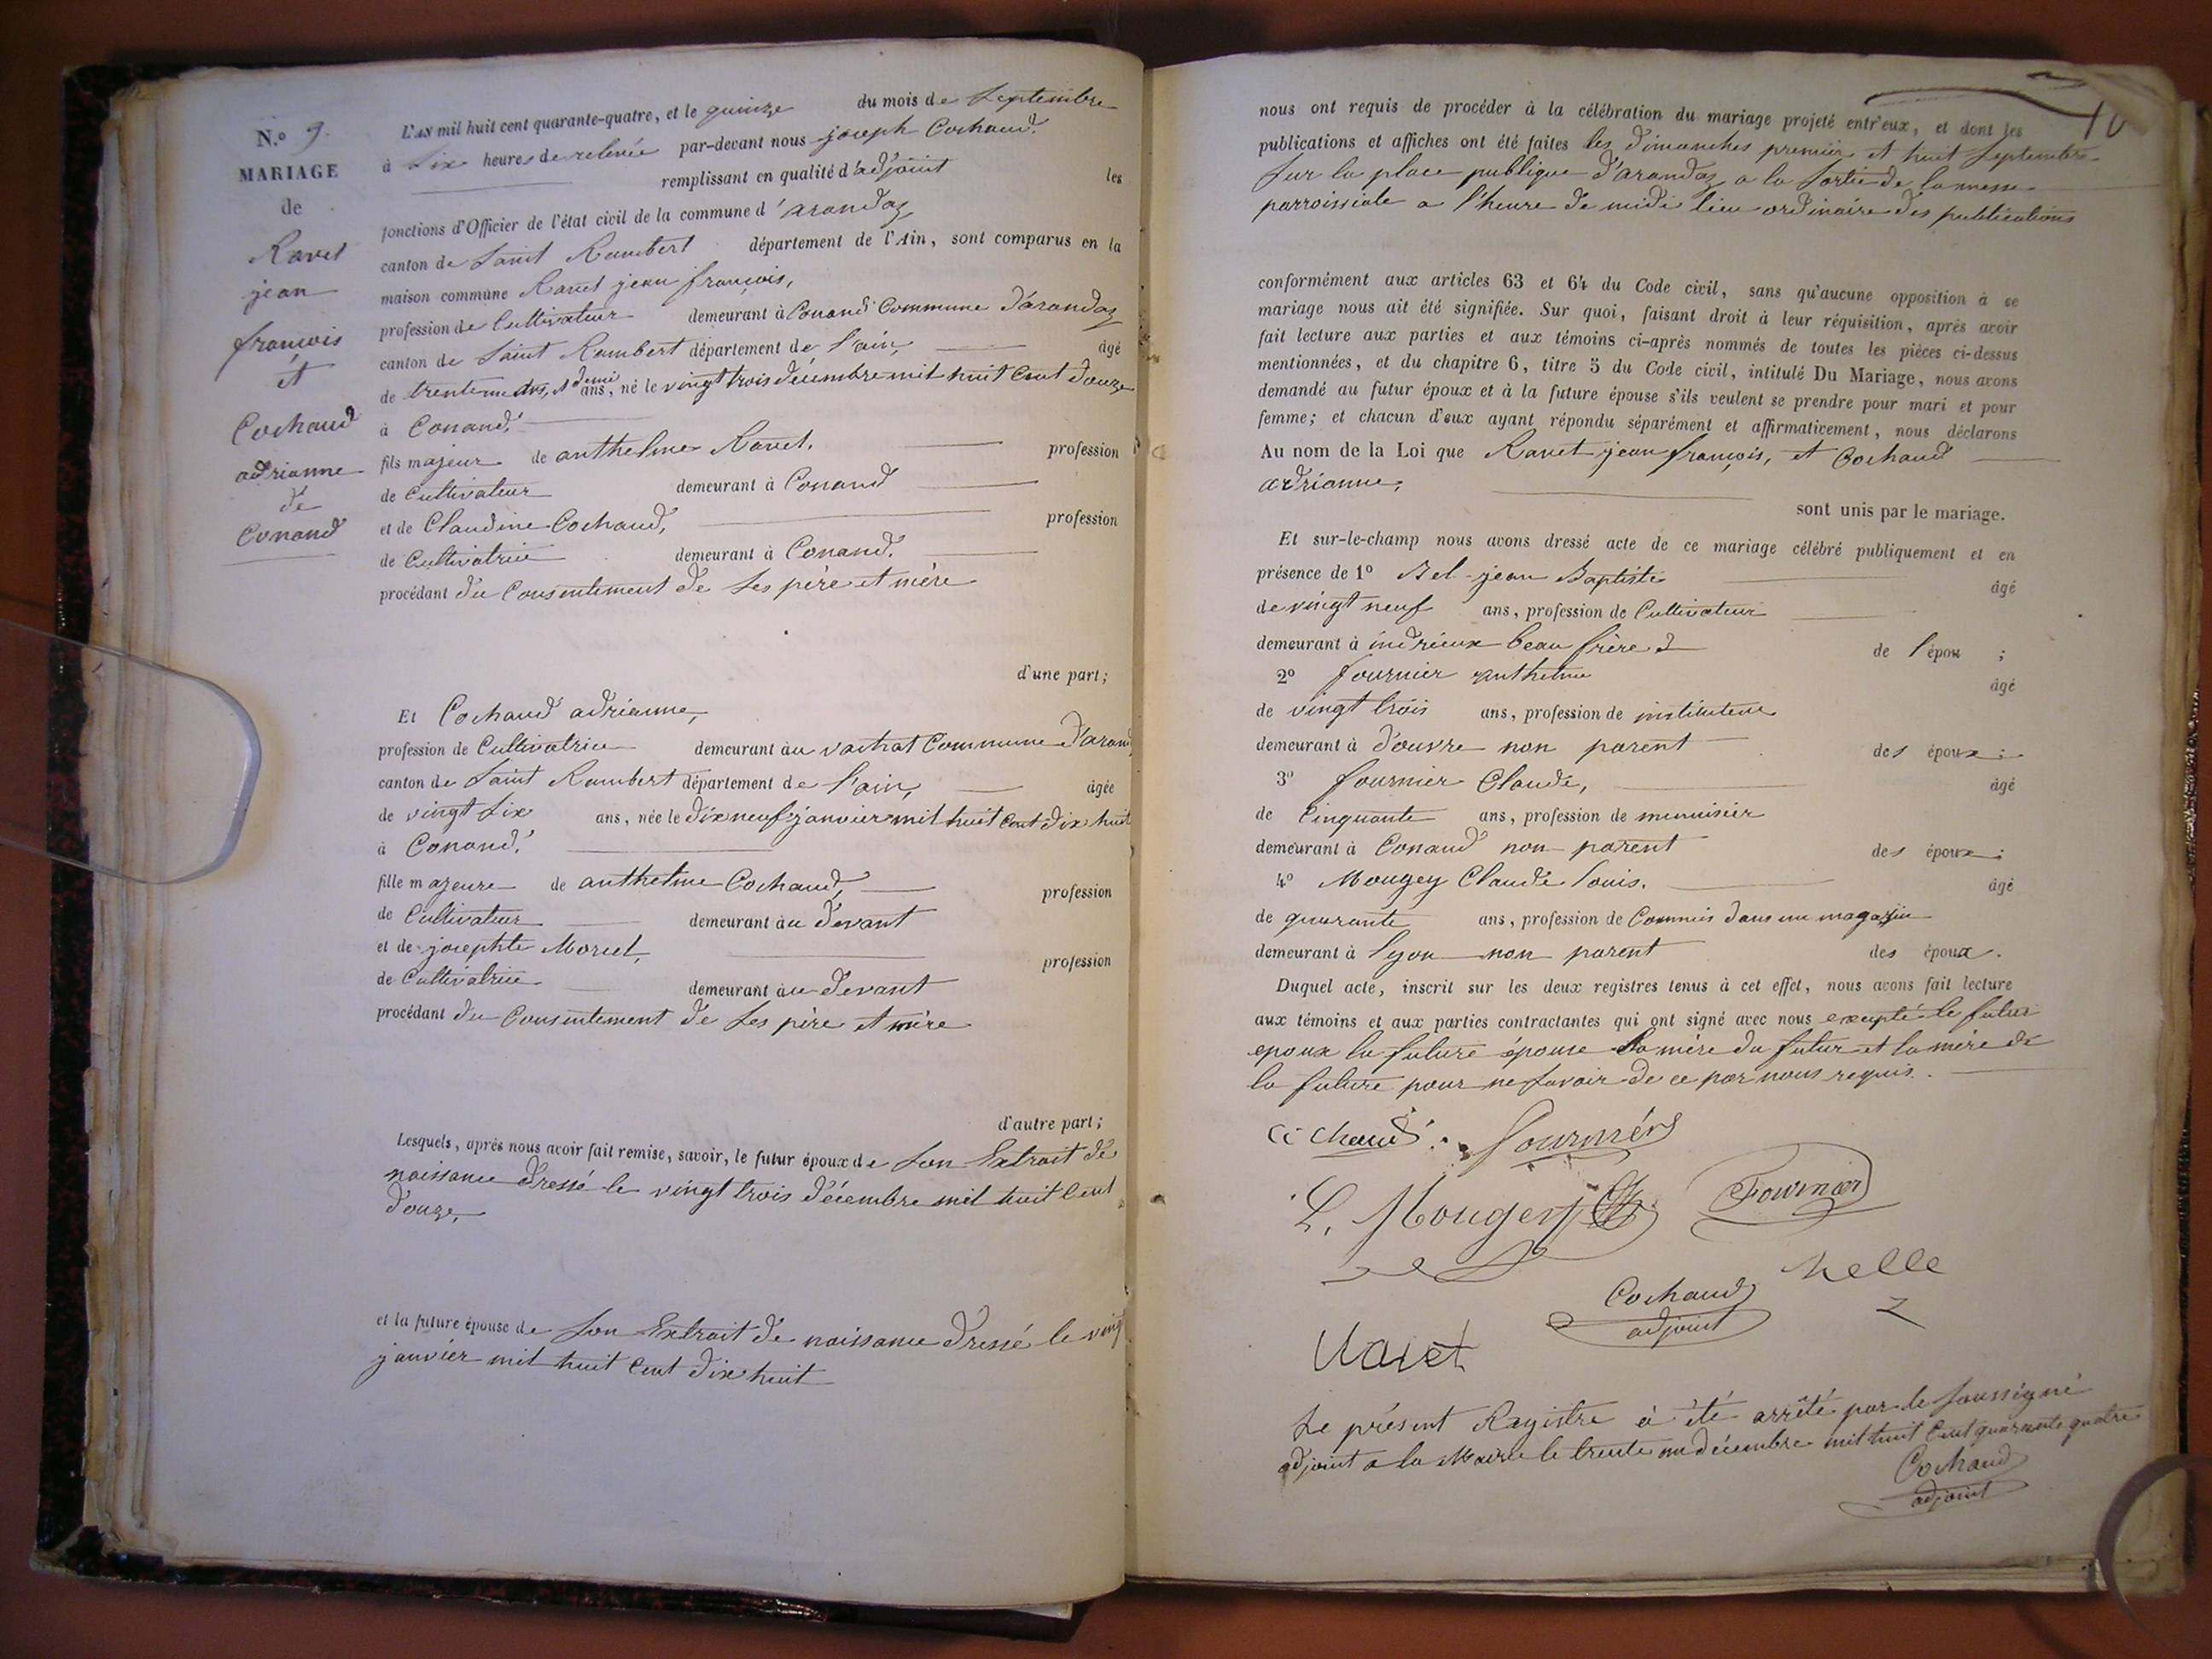 N.o 9.
MARIAGE
de
Ravet
jean
françois
et
Cochaud
adrianne
de
Conand
L'AN mil huit cent quarante-quatre, et le quinze du mois de Septembre
à Six heures de relevée par-devant nous joseph Cochaud.
remplissant en qualité d'adjoint les
fonctions d'Officier de l'état civil de la commune d'arandaz
canton de Saint Rambert département de l'Ain, sont comparus en la
maison commune Ravet jean françois,
profession de Cultivateur demeurant à Conand Commune d'arandaz
canton de Saint Rambert département de l'ain, âgé
de trente un ans, et demi ans, né le vingt trois décembre mil huit Cent douze
à Conand.
fils majeur de anthelme Ravet. profession
de Cultivateur demeurant à Conand
et de Claudine Cochaud, profession
de Cultivatrice demeurant à Conand.
procédant du Consentement de Ses père et mère
d'une part;
Et Cochaud adrianne,
profession de Cultivatrice demeurant àu vachat Commune d'arand
canton de Saint Rambert département de l'ain, âgée
de vingt Six ans, née le dix neuf janvier mil huit Cent dix huit
à Conand.
fille majeure de anthelme Cochaud, profession
de Cultivateur demeurant àu devant
et de josephte Morel, profession
de Cultivatrice demeurant àu devant
procédant du Consentement de Ses père et mère
d'autre part;
Lesquels, après nous avoir fait remise, savoir, le futur époux de Son Extrait de
naissance dressé le vingt trois décembre mil huit Cent
douze,
et la future épouse de Son Extrait de naissance dressé le vingt
janvier mil huit Cent dix huit
10
nous ont requis de procéder à la célébration du mariage projeté entr'eux, et dont les
publications et affiches ont été faites les dimanches premier et huit Septembre
Sur la place publique d'arandaz a la Sortie de la messe
parroissiale a l'heure de midi lieu ordinaire des publications
conformément aux articles 63 et 64 du Code civil, sans qu'aucune opposition à ce
mariage nous ait été signifiée. Sur quoi, faisant droit à leur réquisition, après avoir
fait lecture aux parties et aux témoins ci-après nommés de toutes les pièces ci-dessus
mentionnées, et du chapitre 6, titre 5 du Code civil, intitulé Du Mariage, nous avons
demandé au futur époux et à la future épouse s'ils veulent se prendre pour mari et pour
femme; et chacun d'eux ayant répondu séparément et affirmativement, nous déclarons
Au nom de la Loi que Ravet jean françois, et Cochaud
adrianne,
sont unis par le mariage.
Et sur-le-champ nous avons dressé acte de ce mariage célébré publiquement et en
présence de 1º Bel jean Baptiste âgé
de vingt neuf ans, profession de Cultivateur
demeurant à indrieux beau frère de l'épou ;
2º fournier anthelme âgé
de vingt trois ans, profession de instituteur
demeurant à d'ouvre non parent des époux ;
3º fournier Claude, âgé
de Cinquante ans, profession de menuisier
demeurant à Conand non parent des époux ;
4º Mougey Claude Louis. âgé
de quarante ans, profession de Commis dans un magasin
demeurant à Lyon non parent des époux.
Duquel acte, inscrit sur les deux registres tenus à cet effet, nous avons fait lecture
aux témoins et aux parties contractantes qui ont signé avec nous excepté le futur
epoux la future épouse la mère du futur et la mère de
la future pour ne Savoir de ce par nous requis.
Cochaud. Fournier
L. Mougey Fournier
Cochaud
adjoint
Ravet
Le présent Registre à été arrêté par le Soussigné
adjoint a la Mairie le trente un décembre mil huit Cent quarante quatre
Cochaud
adjoint